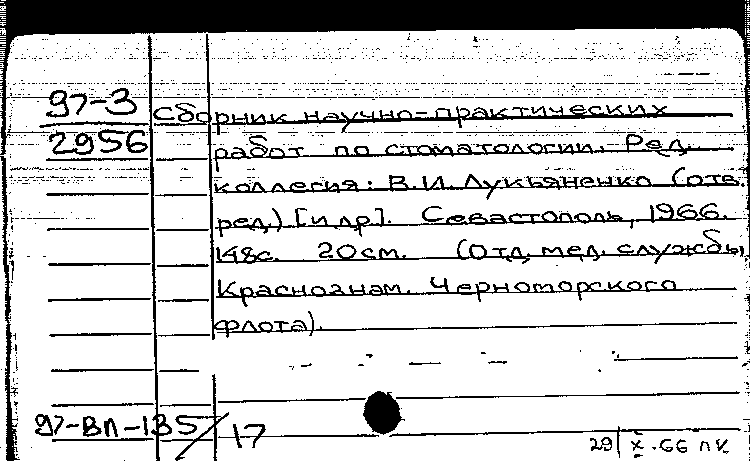 97-3 Сборник научно-практических
2956 работ по стоматологии. Ред.
коллегия: В.И. Лукьяненко (отв.
ред.) [и др]. Севастополь, 1966.
148с. 20см. (Отд. мед. службы
Краснознам. Черноморского
флота).
97-ВЛ-135/17
29/X.66 ПК